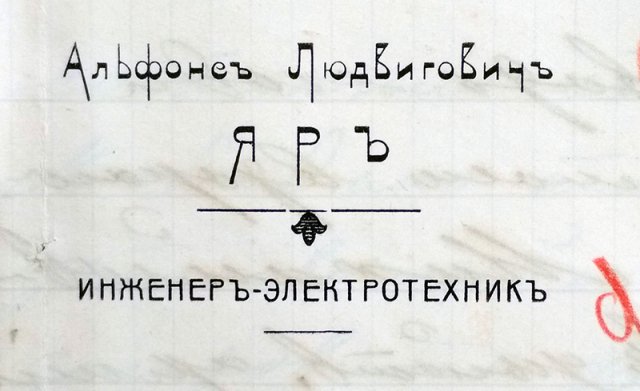 Альфонсъ Людвиговичъ
ЯРЪ
ИНЖЕНЕРЪ-ЭЛЕКТРОТЕХНИКЪ